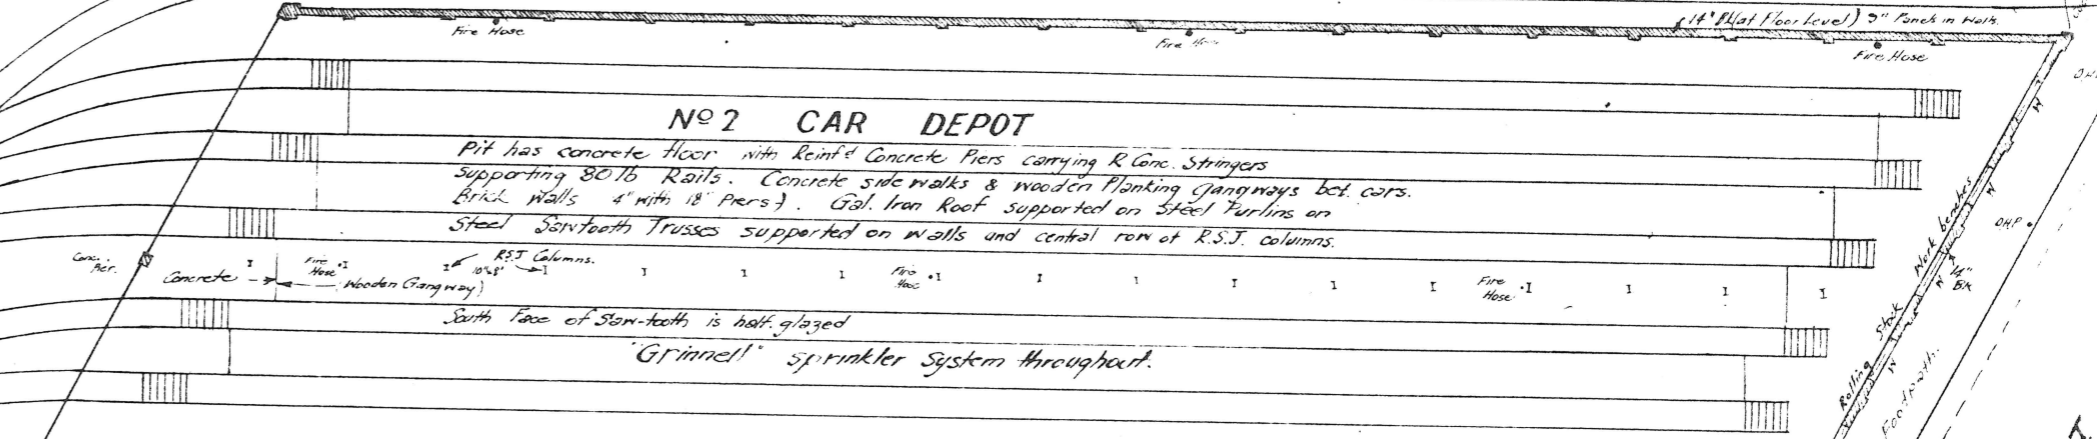 14" Bk (at Floor Level) 9" Panels in Walls.
Fire Hose
Fire Hose
Fire Hose
Nº 2 CAR DEPOT
Pit has concrete floor with Reinf'd Concrete Piers carrying R Conc. Stringers
supporting 80 lb Rails. Concrete side walks & wooden Planking gangways bet. cars.
Brick Walls 4" with 18" Piers}. Gal. Iron Roof supported on Steel Purlins on
Steel Sawtooth Trusses supported on walls and central row of R.S.J. columns.
Conc. Pier.
Fire Hose
R.S.J. Columns.
10"x8"
Fire Hose
Fire Hose
Concrete
Wooden Gangway)
South Face of Saw-tooth is half-glazed
"Grinnell" sprinkler System throughout.
Rolling Stock Work benches
14" BK
OHP
Footpath.
W
W
W
W
W